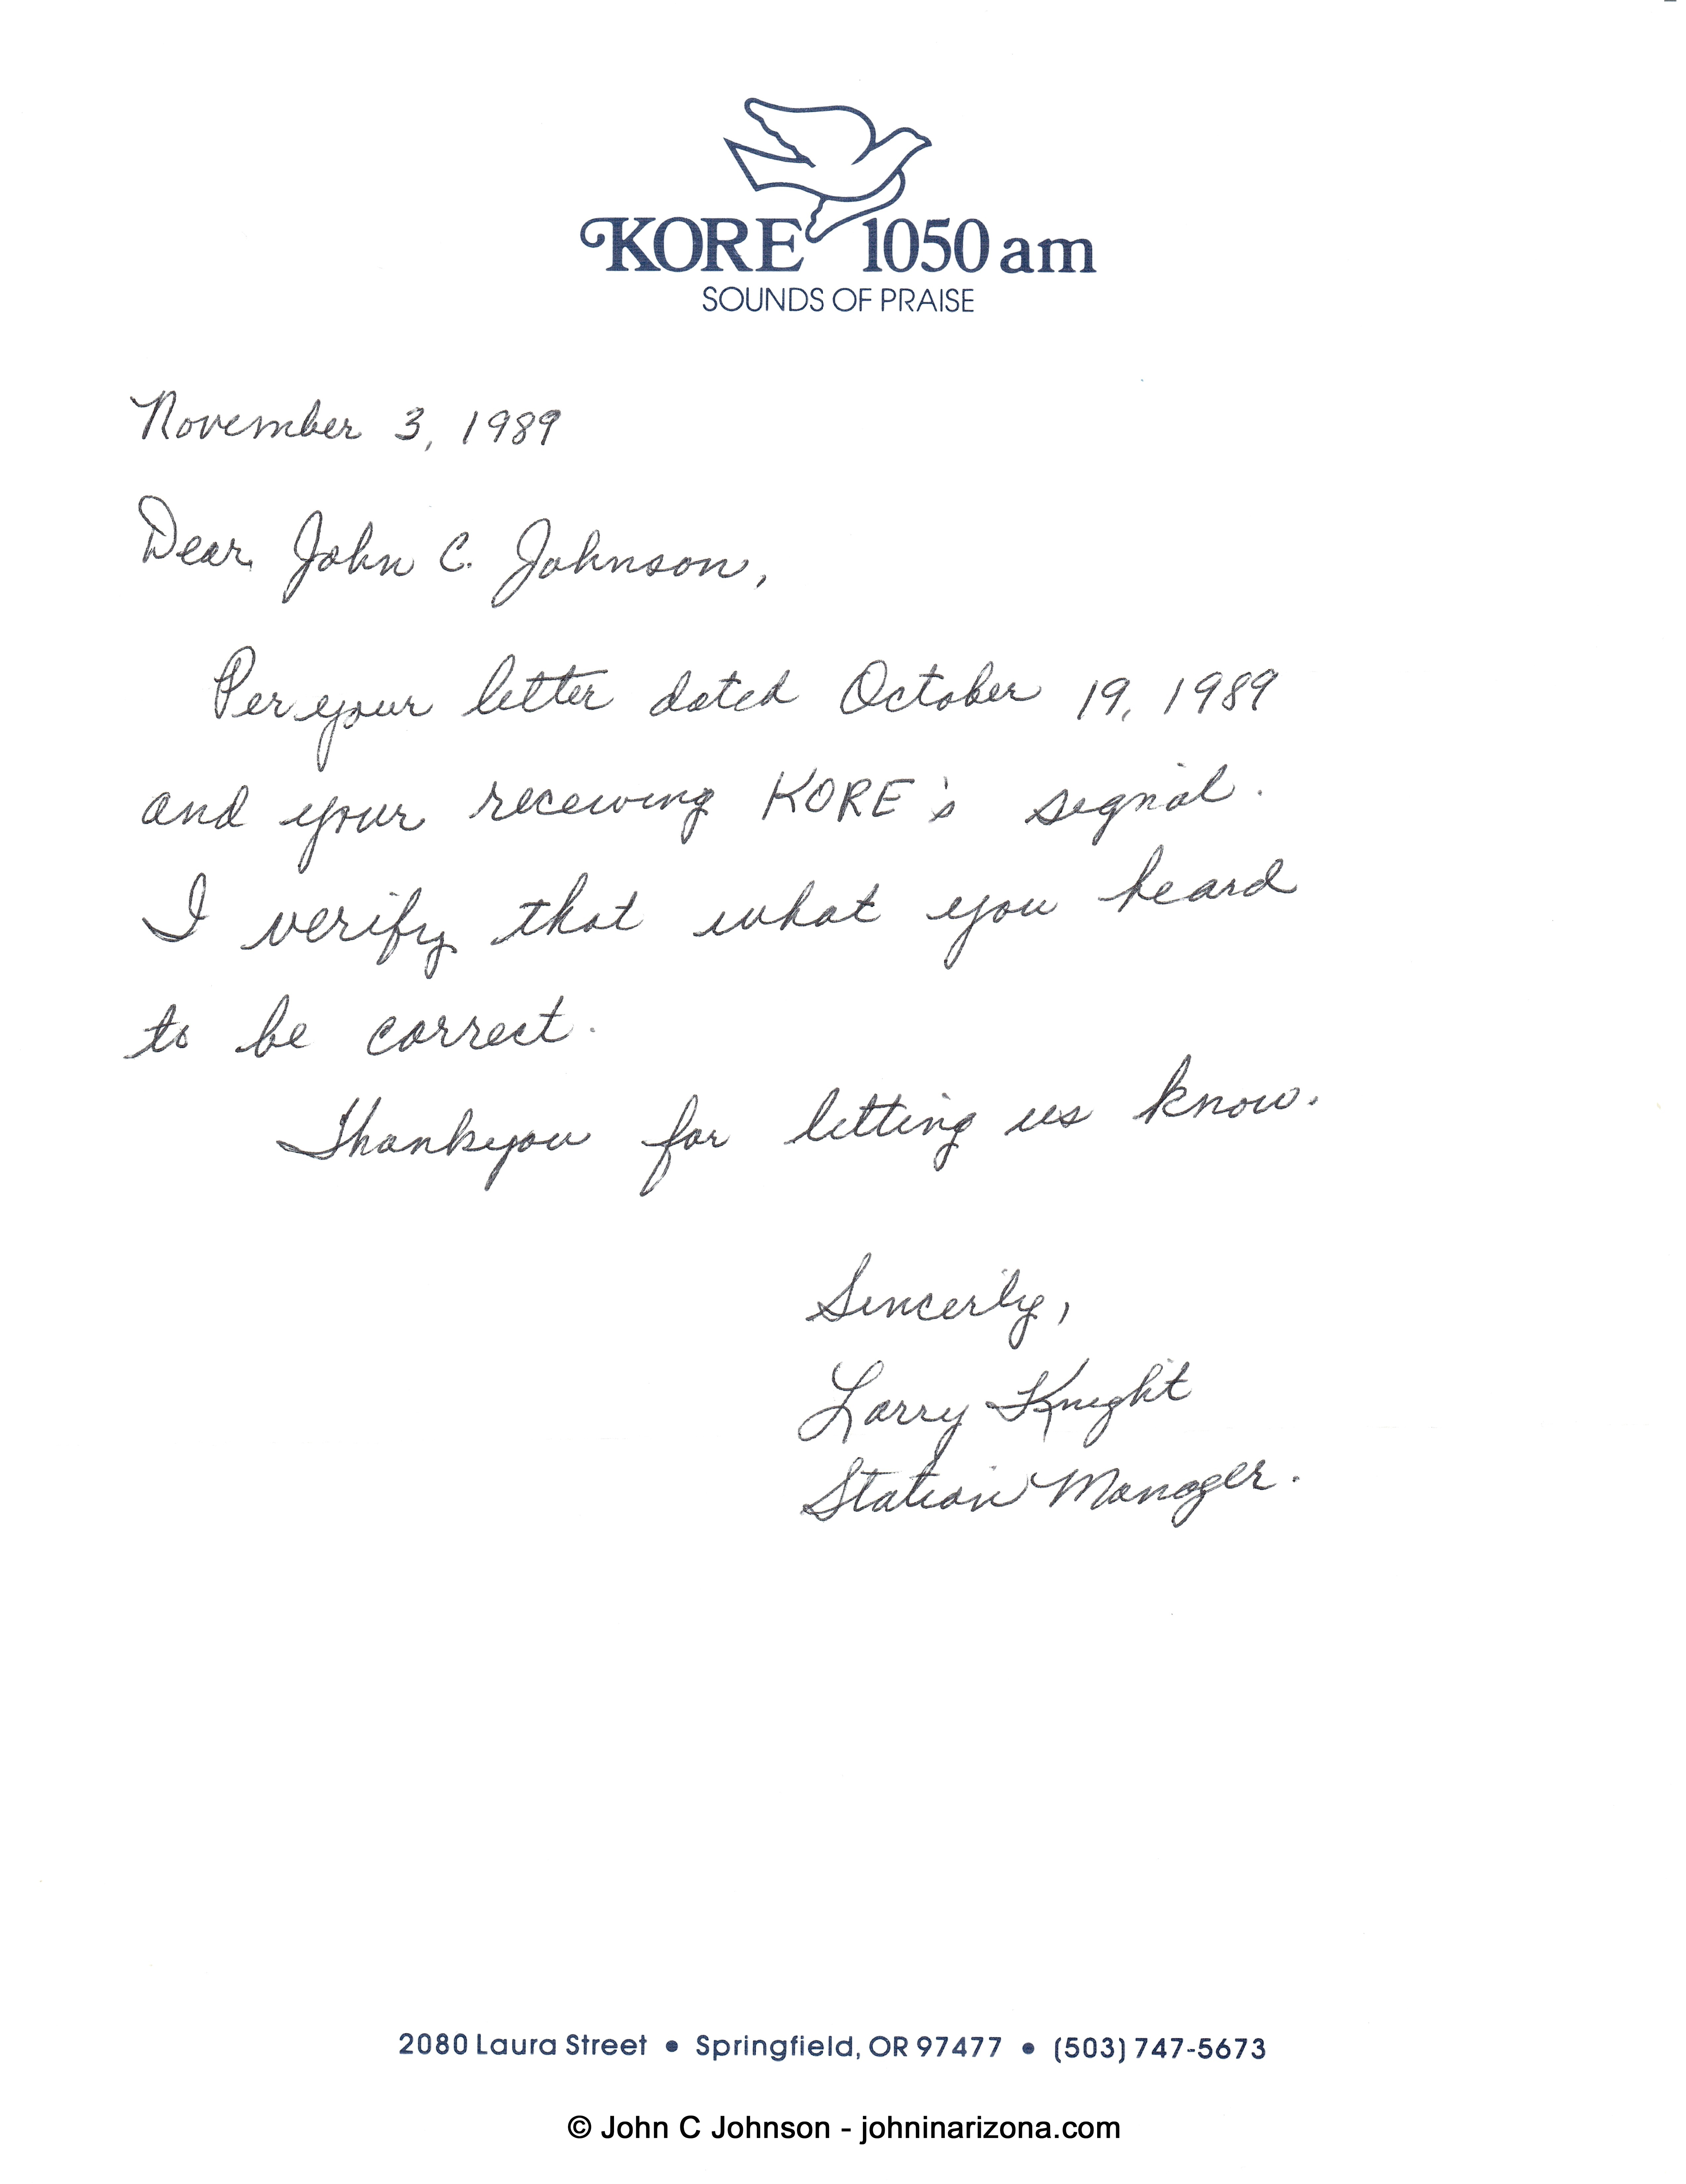 KORE 1050 am
SOUNDS OF PRAISE
November 3, 1989
Dear John C. Johnson,
Per your letter dated October 19, 1989
and your receiving KORE's signal.
I verify that what you heard
to be correct.
Thankyou for letting us know.
Sincerly,
Larry Knight
Station Manager.
2080 Laura Street • Springfield, OR 97477 • (503) 747-5673
© John C Johnson - johninarizona.com